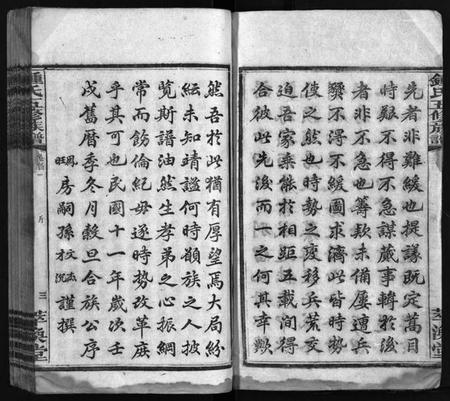 鍾氏五修族譜
先者非難緩也提議既定萬目
時艱不得不急謀蕆事轉於後
者非不急也籌款未備屢遭兵
燹不得不緩圖求濟此皆時勢
使之然也時勢之變移兵荒交
迫吾家乘能於相距五載間得
合彼此先後而一之何其幸歟
然吾於此猶有厚望焉大局紛
紜未知靖謐何時願族之人披
覽斯譜油然生孝弟之心振綱
常而飭倫紀毋逐時勢改革庶
乎其可也民國十一年歲次壬
戌舊曆季冬月穀旦合族公序
鳳旺房嗣孫謹撰
鍾氏五修族譜
三